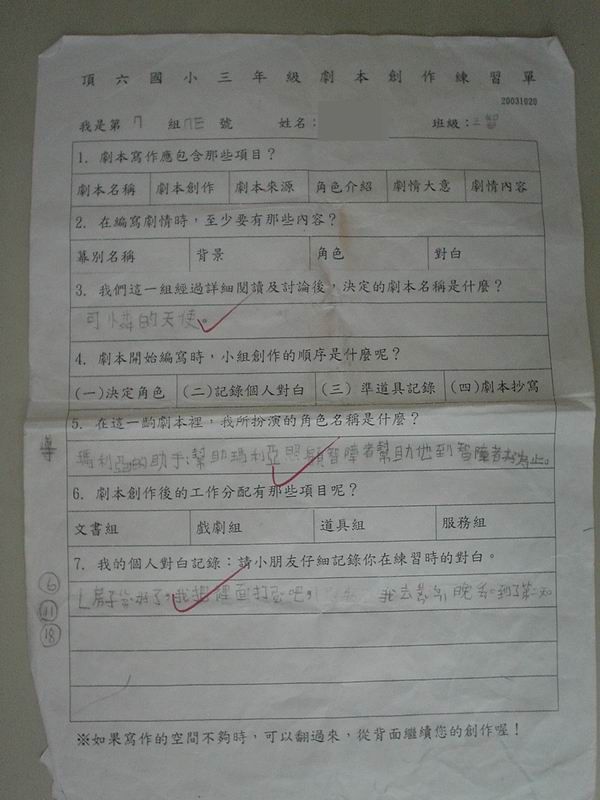 頂六國小三年級劇本創作練習單
20031020
我是第 7 組 號 姓名： 班級：三
1. 劇本寫作應包含那些項目？
劇本名稱 劇本創作 劇本來源 角色介紹 劇情大意 劇情內容
2. 在編寫劇情時，至少要有那些內容？
幕別名稱 背景 角色 對白
3. 我們這一組經過詳細閱讀及討論後，決定的劇本名稱是什麼？
可憐的天使。
4. 劇本開始編寫時，小組創作的順序是什麼呢？
(一)決定角色 (二)記錄個人對白 (三) 準道具記錄 (四)劇本抄寫
5. 在這一齣劇本裡，我所扮演的角色名稱是什麼？
瑪利亞的助手：幫助瑪利亞照顧智障者幫助他到智障者為止。
6. 劇本創作後的工作分配有那些項目呢？
文書組 戲劇組 道具組 服務組
7. 我的個人對白記錄：請小朋友仔細記錄你在練習時的對白。
房子 好了，我把裡面打 吧， 我去 到了第二天
6
11
18
※如果寫作的空間不夠時，可以翻過來，從背面繼續您的創作喔！